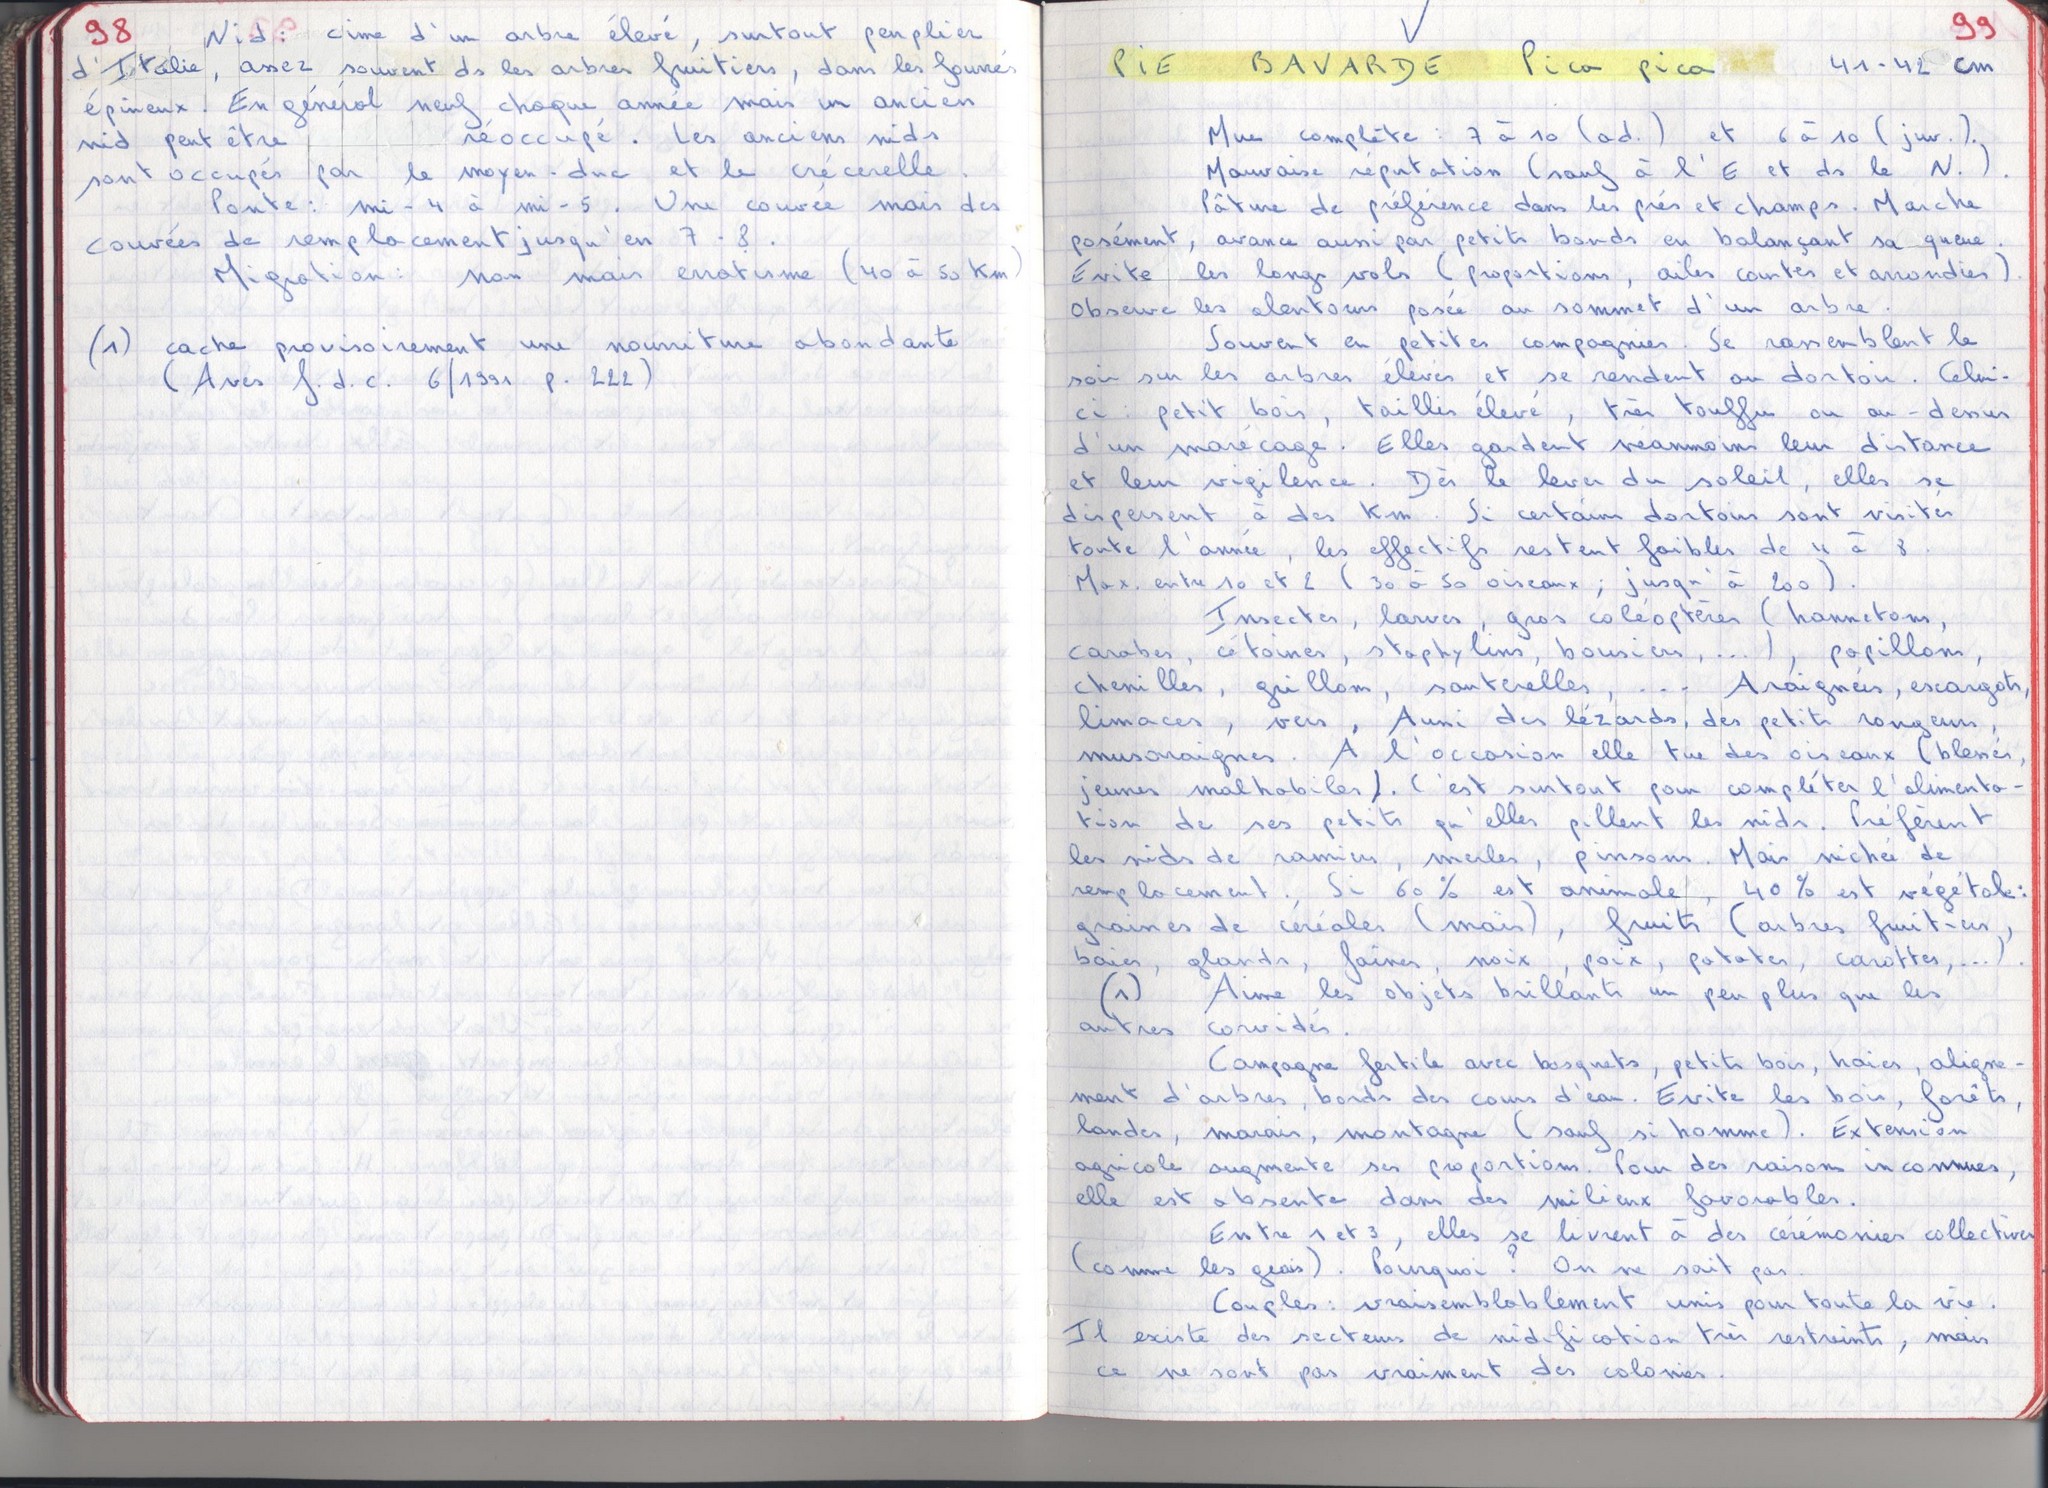 98
Nid : cime d'un arbre élevé, surtout peuplier
d'Italie, assez souvent ds les arbres fruitiers, dans les fourrés
épineux. En général neuf chaque année mais un ancien
nid peut être réoccupé. Les anciens nids
sont occupés par le moyen-duc et le crécerelle.
Ponte : mi-4 à mi-5. Une couvée mais des
couvées de remplacement jusqu'en 7-8.
Migration : non mais erratisme (40 à 50 Km)
(1) cache provisoirement une nourriture abondante
(Aves f.d.c. 6/1991 p. 222)
99
PIE BAVARDE Pica pica 41-42 cm
Mue complète : 7 à 10 (ad.) et 6 à 10 (juv.).
Mauvaise réputation (sauf à l'E et ds le N.).
Pâture de préférence dans les prés et champs. Marche
posément, avance aussi par petits bonds en balançant sa queue.
Evite les longs vols (proportions, ailes courtes et arrondies).
Observe les alentours posée au sommet d'un arbre.
Souvent en petites compagnies. Se rassemblent le
soir sur les arbres élevés et se rendent au dortoir. Celui-
ci : petit bois, taillis élevé, très touffu ou au-dessus
d'un marécage. Elles gardent néanmoins leur distance
et leur vigilence. Dès le lever du soleil, elles se
dispersent à des Km. Si certains dortoirs sont visités
toute l'année, les effectifs restent faibles de 4 à 8.
Max. entre 10 et 2 (30 à 50 oiseaux ; jusqu'à 200).
Insectes, larves, gros coléoptères (hannetons,
carabes, cétoines, staphylins, bousiers, ...), papillons,
chenilles, grillons, sauterelles, ... Araignées, escargots,
limaces, vers, Aussi des lézards, des petits rongeurs,
musaraignes. A l'occasion elle tue des oiseaux (blessés,
jeunes malhabiles). C'est surtout pour compléter l'alimenta-
tion de ses petits qu'elles pillent les nids. Préfèrent
les nids de ramiers, merles, pinsons. Mais nichée de
remplacement. Si 60 % est animale, 40 % est végétale :
graines de céréales (maïs), fruits (arbres fruitiers,
baies, glands, faînes, noix, poix, patates, carottes, ...).
(1) Aime les objets brillants un peu plus que les
autres corvidés.
Campagne fertile avec bosquets, petits bois, haies, aligne-
ment d'arbres, bords des cours d'eau. Evite les bois, forêts,
landes, marais, montagne (sauf si homme). Extension
agricole augmente ses proportions. Pour des raisons inconnues,
elle est absente dans des milieux favorables.
Entre 1 et 3, elles se livrent à des cérémonies collectives
(comme les geais). Pourquoi ? On ne sait pas.
Couples : vraisemblablement unis pour toute la vie.
Il existe des secteurs de nidification très restreints, mais
ce ne sont pas vraiment des colonies.